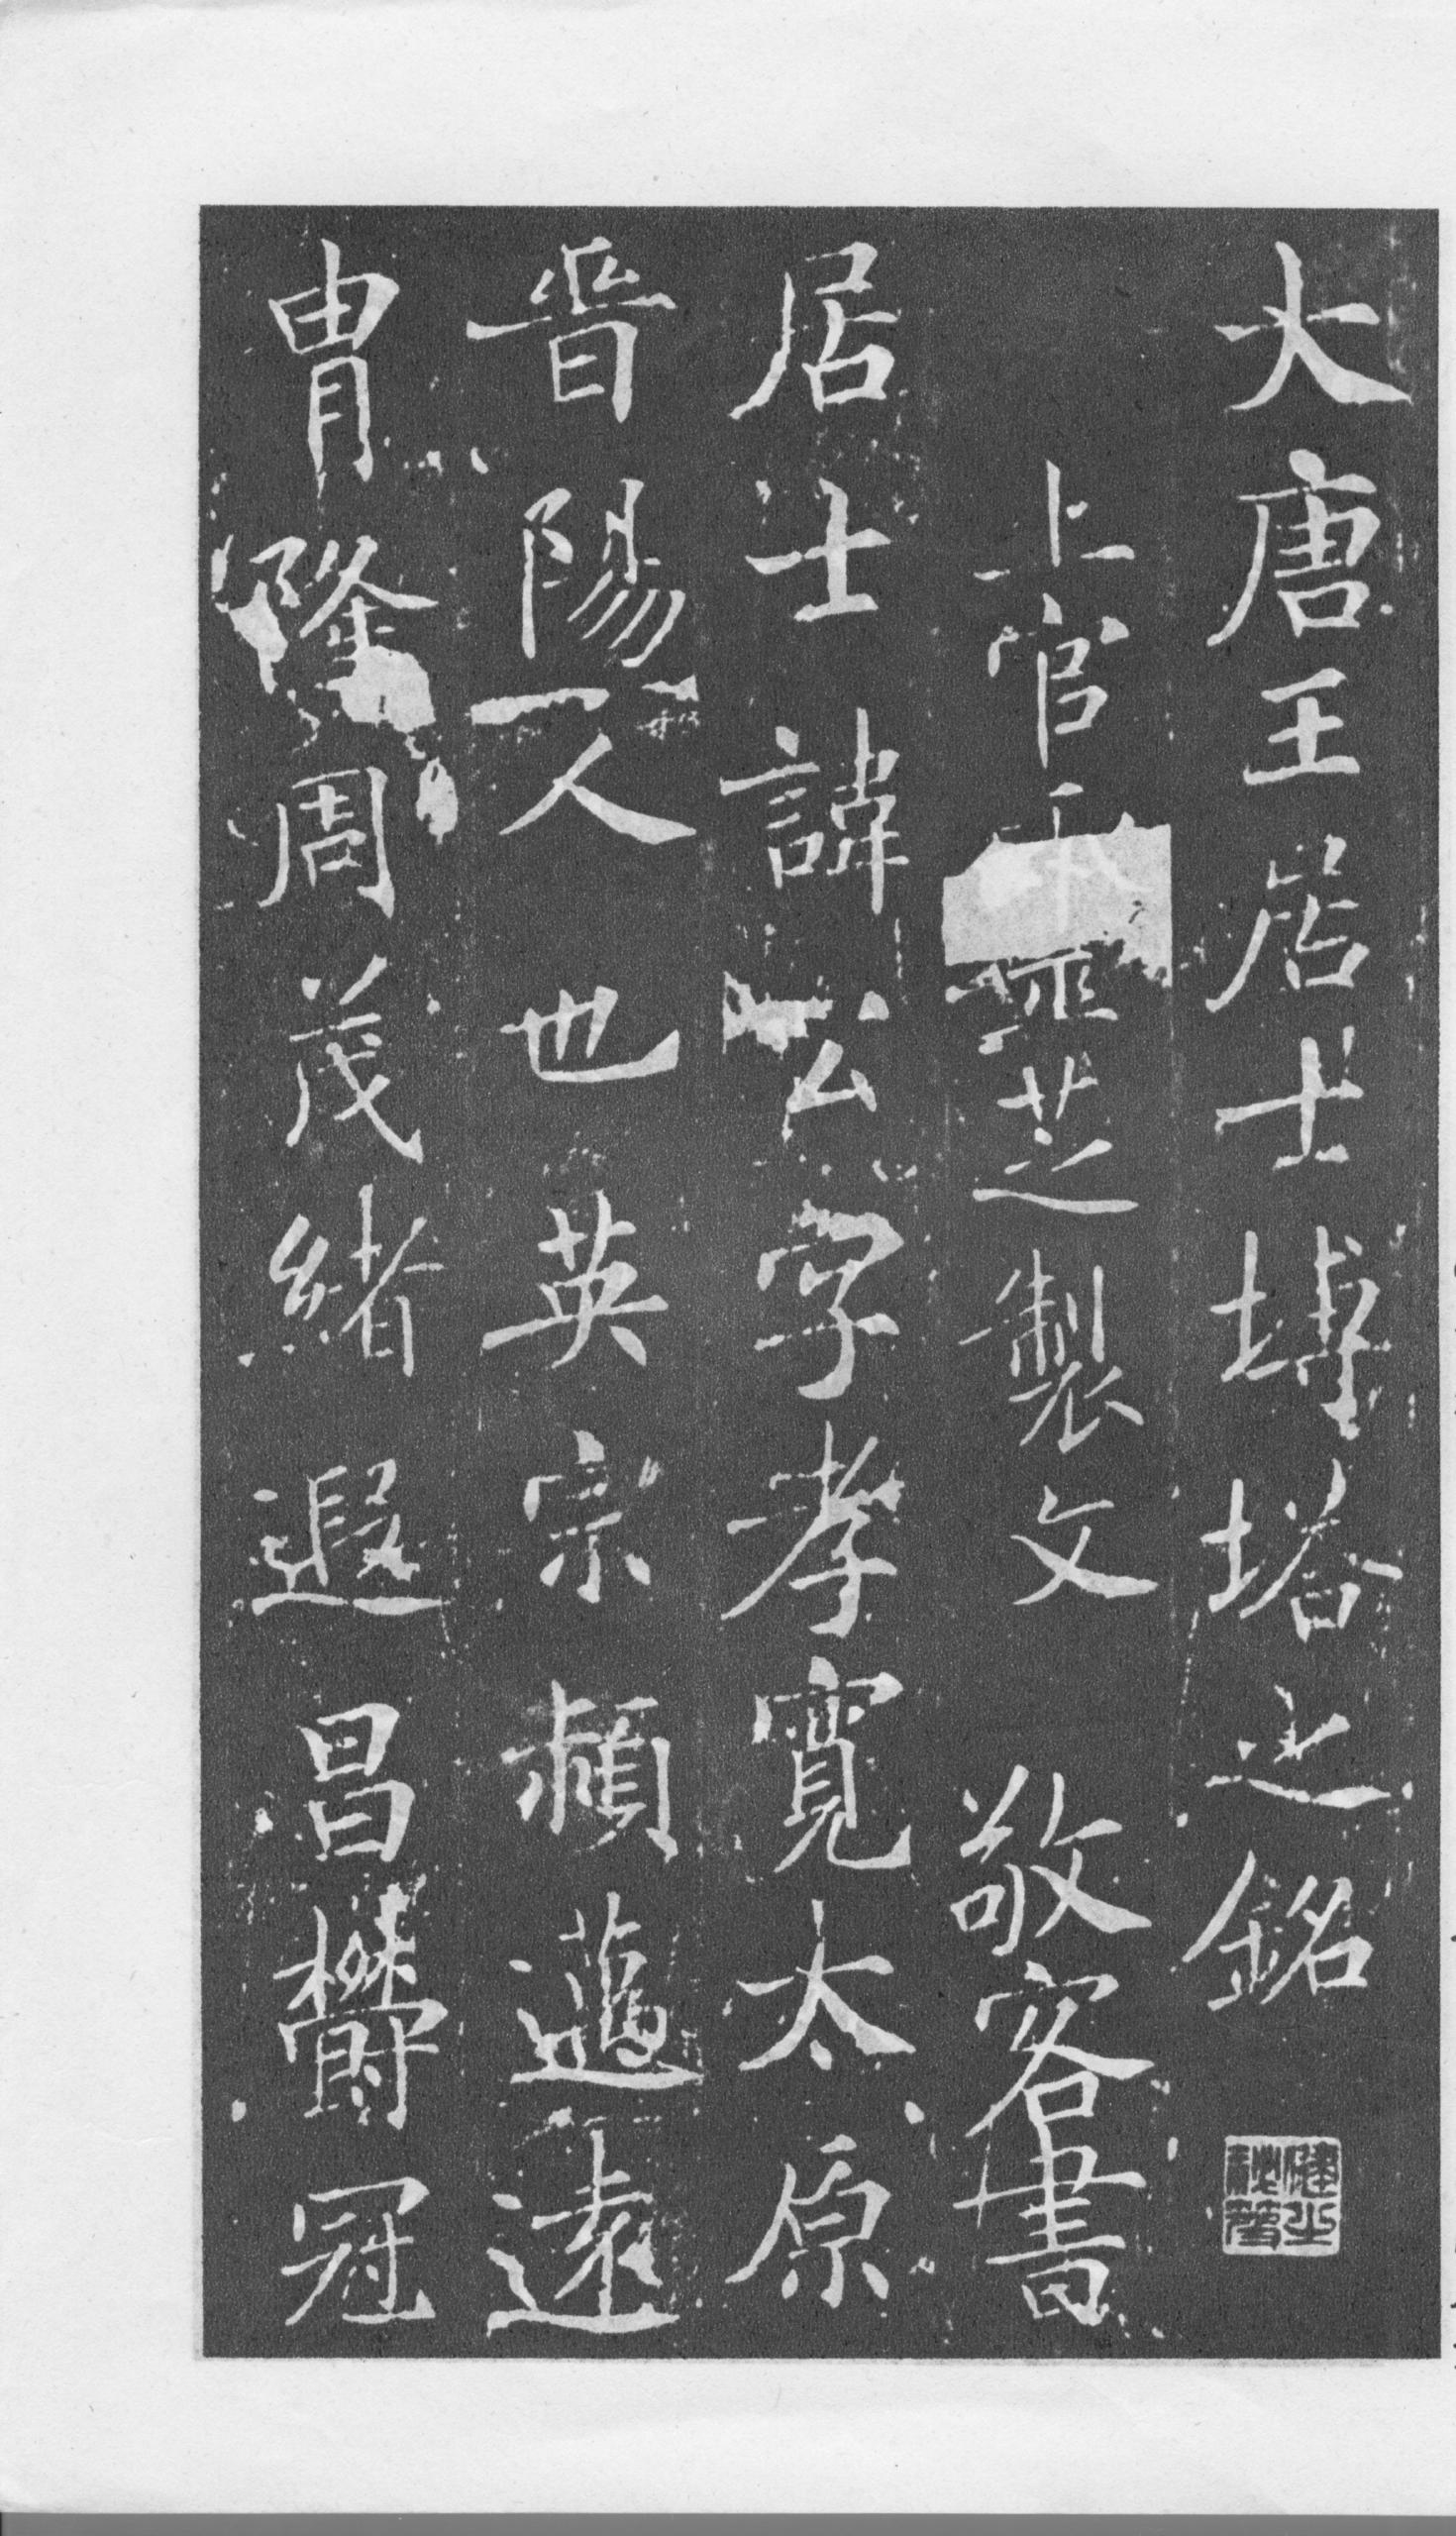 大唐王居士塼塔之銘
上官靈芝製文 敬客書
居士諱公字孝寬太原
晉陽人也英宗穎邁遠
冑隆周茂緒遐昌欝冠